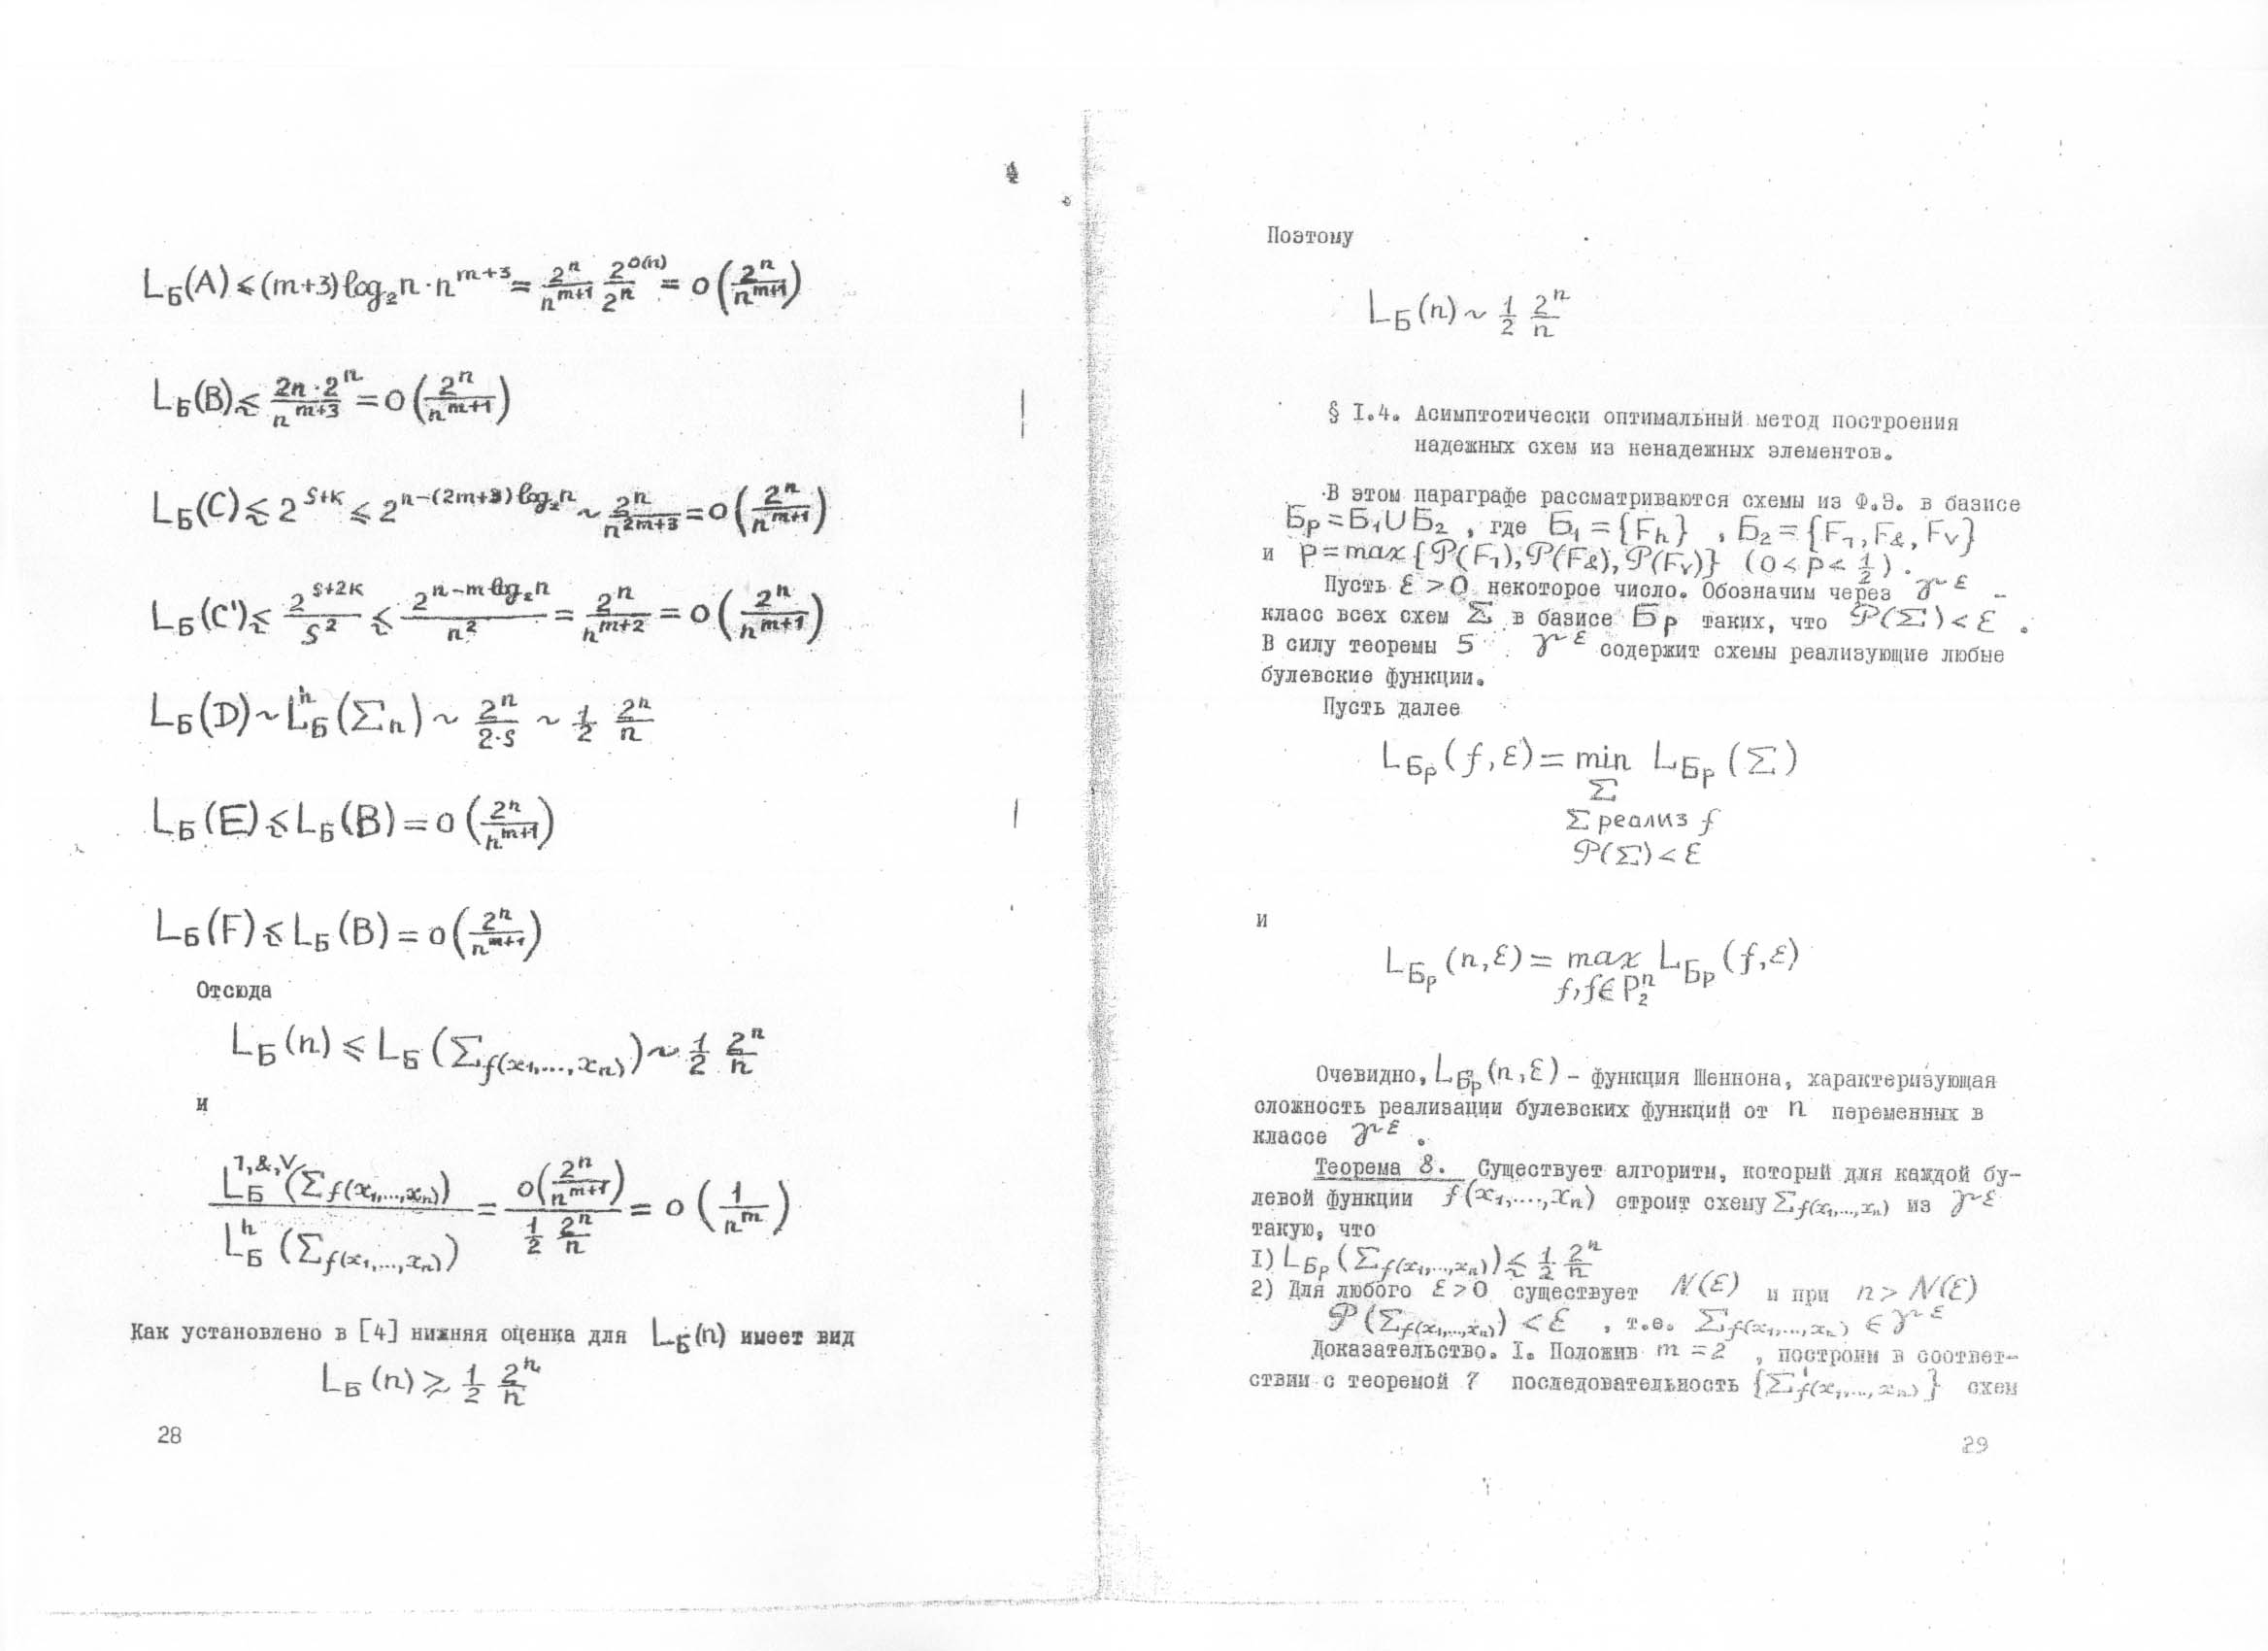 L_Б(A) ⩽ (m+3) log₂n · n^{m+3} = \frac{2^n}{n^{m+1}} \frac{2^{o(n)}}{2^n} = o(\frac{2^n}{n^{m+1}})
L_Б(B) ≲ \frac{2n·2^n}{n^{m+3}} = o(\frac{2^n}{n^{m+1}})
L_Б(C) ≲ 2^{s+k} ⩽ 2^{n-(2m+3)log₂n} ~ \frac{2^n}{n^{2m+3}} = o(\frac{2^n}{n^{m+1}})
L_Б(C') ≲ \frac{2^{s+2k}}{s^2} ≲ \frac{2^{n-m log₂n}}{n^2} = \frac{2^n}{n^{m+2}} = o(\frac{2^n}{n^{m+1}})
L_Б(D) ~ L_Б^h(Σ_n) ~ \frac{2^n}{2·s} ~ \frac{1}{2} \frac{2^n}{n}
L_Б(E) ≲ L_Б(B) = o(\frac{2^n}{n^{m+1}})
L_Б(F) ≲ L_Б(B) = o(\frac{2^n}{n^{m+1}})
Отсюда
L_Б(n) ⩽ L_Б(Σ_{f(x₁,...,xₙ)}) ~ \frac{1}{2} \frac{2^n}{n}
и
\frac{L_Б^{7,&,V}(Σ_{f(x₁,...,xₙ)})}{L_Б^h(Σ_{f(x₁,...,xₙ)})} = \frac{o(\frac{2^n}{n^{m+1}})}{\frac{1}{2} \frac{2^n}{n}} = o(\frac{1}{n^m})
Как установлено в [4] нижняя оценка для L_Б(n) имеет вид
L_Б(n) ≳ \frac{1}{2} \frac{2^n}{n}
28
Поэтому
L_Б(n) ~ \frac{1}{2} \frac{2^n}{n}
§ I.4. Асимптотически оптимальный метод построения
надежных схем из ненадежных элементов.
В этом параграфе рассматриваются схемы из Ф.Э. в базисе
Б_p = Б₁∪Б₂ , где Б₁ = {F_h} , Б₂ = {F₇, F_&, F_V}
и p = max{𝒫(F₇), 𝒫(F_&), 𝒫(F_V)} (0 < p < \frac{1}{2}) .
Пусть ε > 0 некоторое число. Обозначим через 𝒯^ε –
класс всех схем Σ в базисе Б_p таких, что 𝒫(Σ) < ε .
В силу теоремы 5 𝒯^ε содержит схемы реализующие любые
булевские функции.
Пусть далее
L_{Б_p}(f,ε) = min L_{Б_p}(Σ)
Σ
Σ реализ f
𝒫(Σ) < ε
и
L_{Б_p}(n,ε) = max L_{Б_p}(f,ε)
f, f∈P₂ⁿ
Очевидно, L_{Б_p}(n,ε) – функция Шеннона, характеризующая
сложность реализации булевских функций от n переменных в
классе 𝒯^ε .
Теорема 8. Существует алгоритм, который для каждой бу-
левой функции f(x₁,....,xₙ) строит схему Σ_{f(x₁,...,xₙ)} из 𝒯^ε
такую, что
I) L_{Б_p}(Σ_{f(x₁,...,xₙ)}) ≲ \frac{1}{2} \frac{2^n}{n}
2) Для любого ε > 0 существует N(ε) и при n > N(ε)
𝒫(Σ_{f(x₁,...,xₙ)}) < ε , т.е. Σ_{f(x₁,...,xₙ)} ∈ 𝒯^ε
Доказательство. I. Положив m = 2 , построим в соответ-
ствии с теоремой 7 последовательность {Σ'_{f(x₁,...,xₙ)}} схем
29